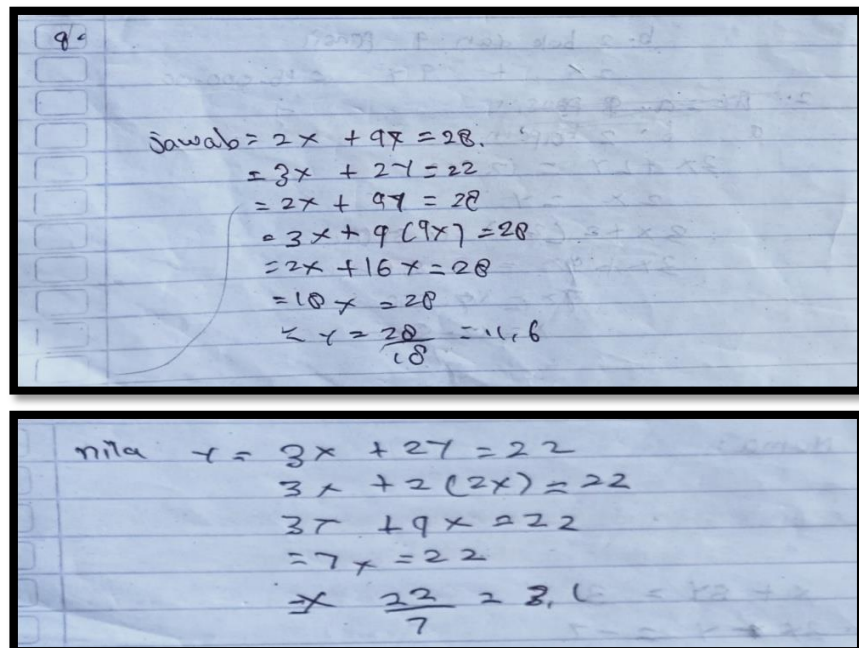 4.
Jawab = 2x + 4y = 28.
= 3x + 2y = 22
= 2x + 4y = 28
= 3x + 4 (4x) = 28
= 2x + 16x = 28
= 18x = 28
= y = 28/18 = 11,6
nila y = 3x + 2y = 22
3x + 2 (2x) = 22
3x + 4x = 22
= 7x = 22
=x 22/7 = 3,1